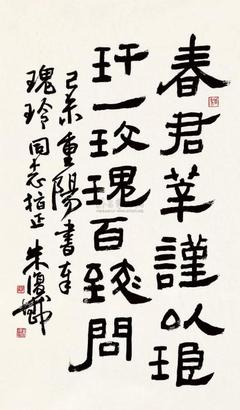 春君幸謹以琅
玕一玫瑰百致問
己未重陽書奉
瑰玲同志指正 朱復戡